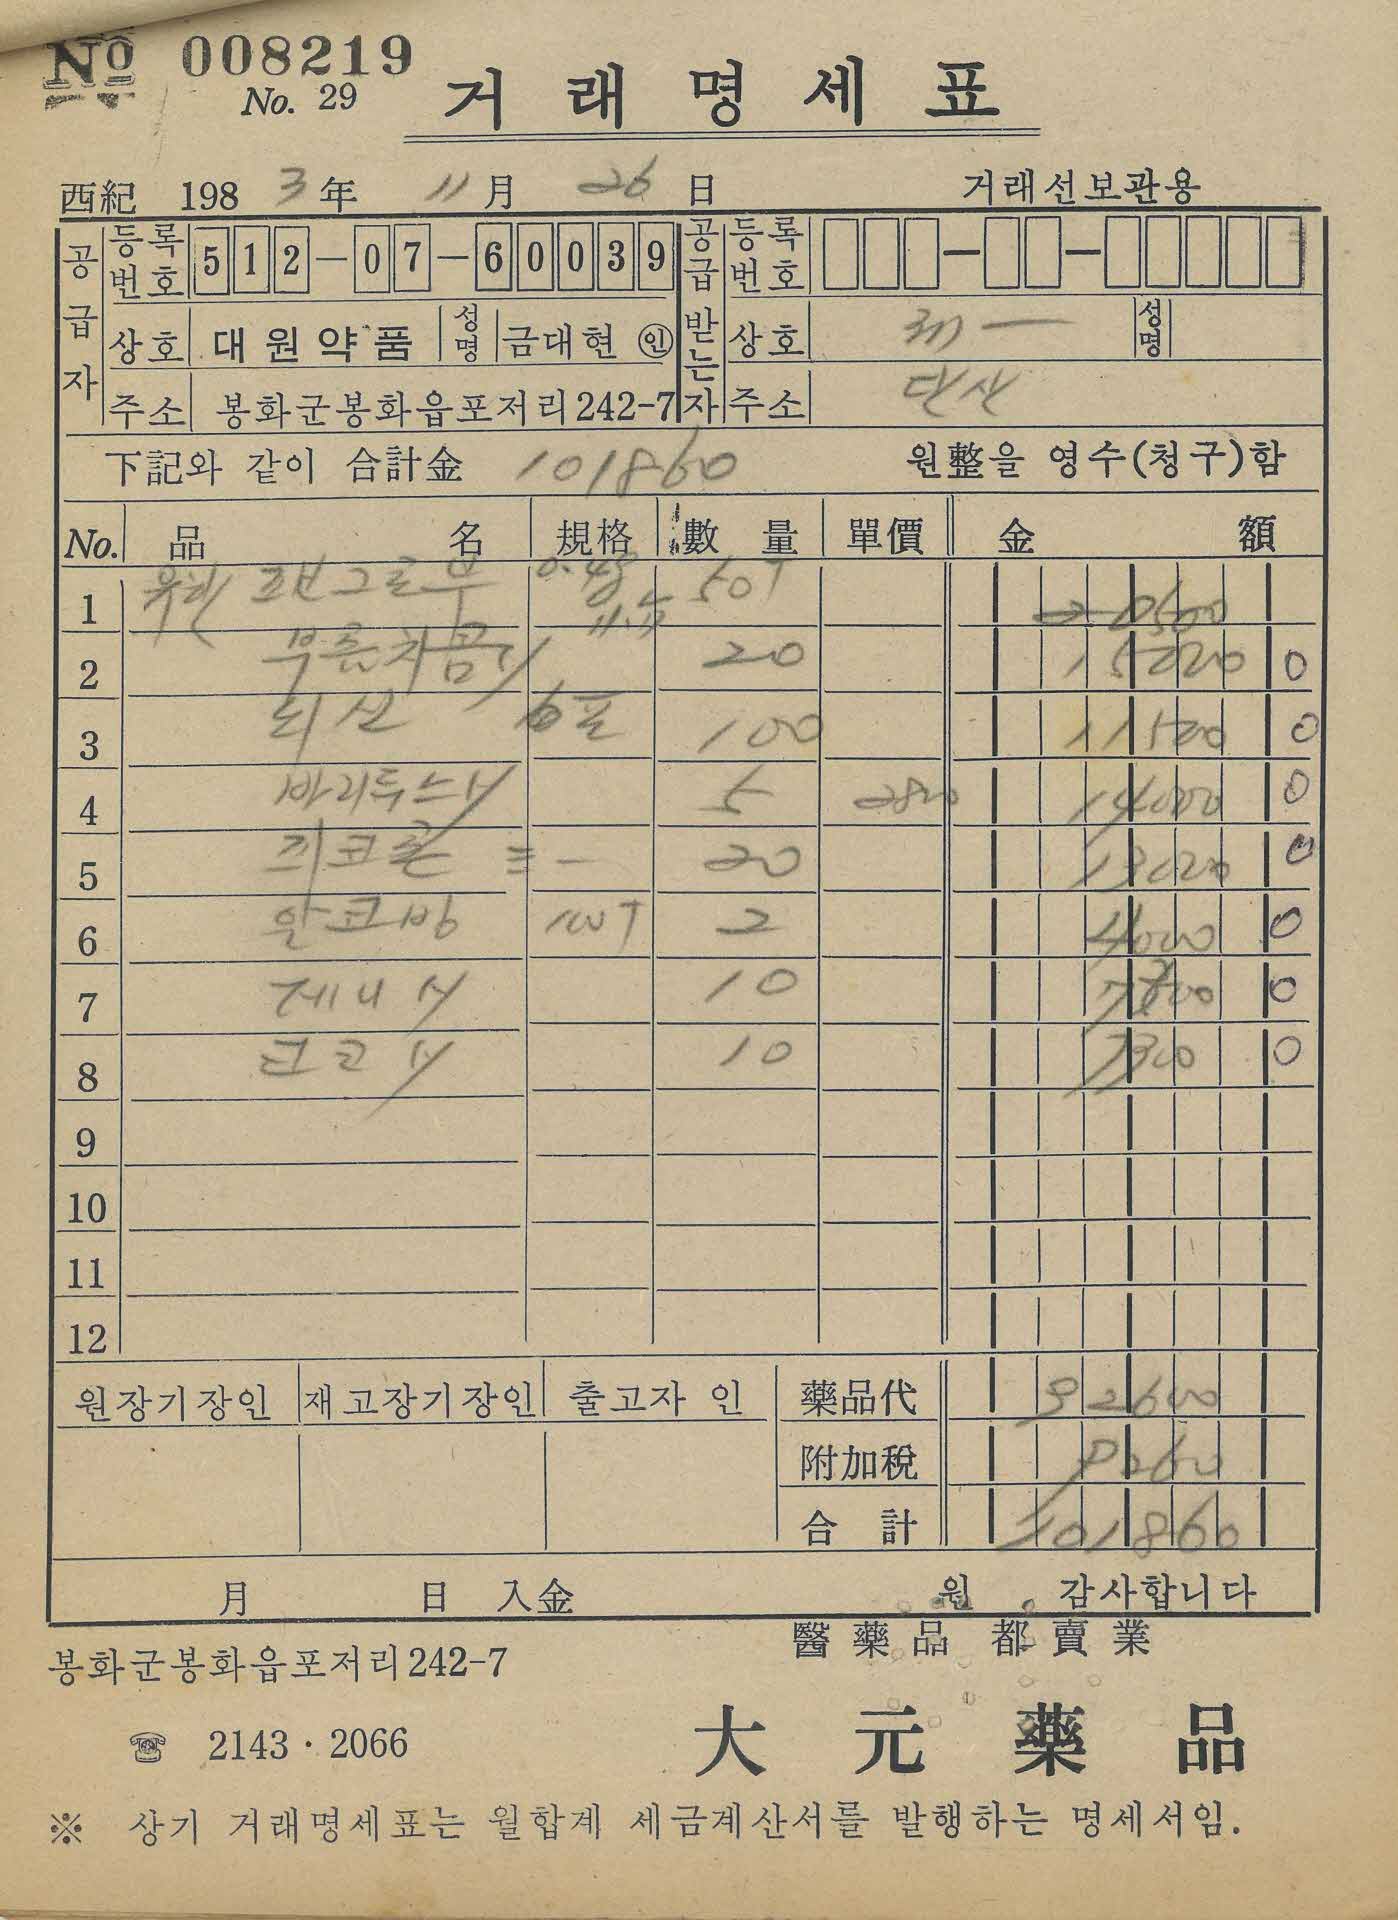 No 008219
No. 29
거래명세표
西紀 1983年 11月 26日 거래선보관용
공급자 등록번호 512-07-60039
상호 대원약품 성명 금대현 ㊞
주소 봉화군봉화읍포저리242-7
공급받는자 등록번호
상호 성명
주소 단산
下記와 같이 合計金 101860 원整을 영수(청구)함
No. 品名 規格 數量 單價 金額
1 50T 20500
2 20 15020 0
3 100 11500 0
4 5 2800 14000 0
5 20 13020 0
6 100T 2 4000 0
7 제니 10 0
8 10 7300 0
9
10
11
12
원장기장인 재고장기장인 출고자 인
藥品代 92600
附加稅 9260
合計 101860
月 日 入金 원 감사합니다
醫藥品 都賣業
봉화군봉화읍포저리242-7
☎ 2143·2066
大元藥品
※ 상기 거래명세표는 월합계 세금계산서를 발행하는 명세서임.